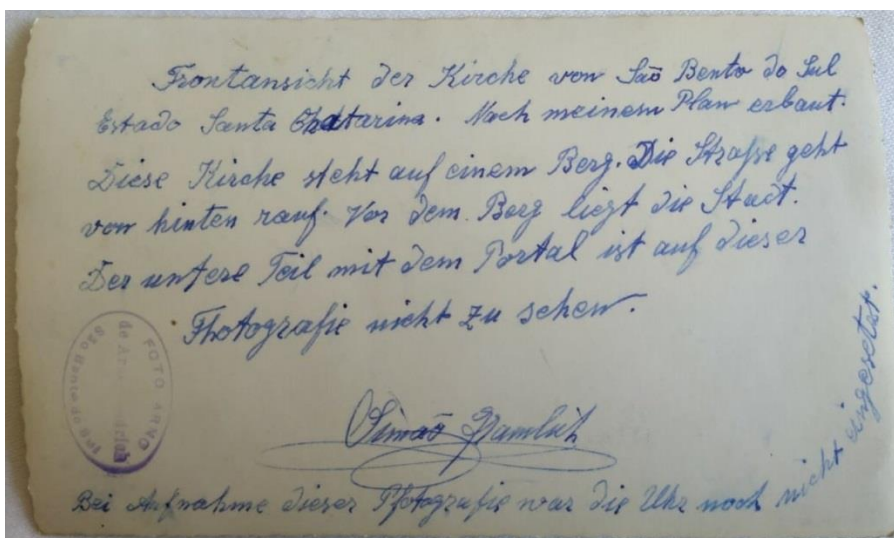 Frontansicht der Kirche von São Bento do Sul
Estado Santa Chatarina. Nach meinem Plan erbaut.
Diese Kirche steht auf einem Berg. Die Straße geht
von hinten rauf. Vor dem Berg liegt die Stadt.
Der untere Teil mit dem Portal ist auf dieser
Photografie nicht zu sehen.
Simaõ Gramlich
Bei Aufnahme dieser Pfotografie war die Uhr noch nicht eingesetzt.
FOTO ARNO
de
São Bento do Sul